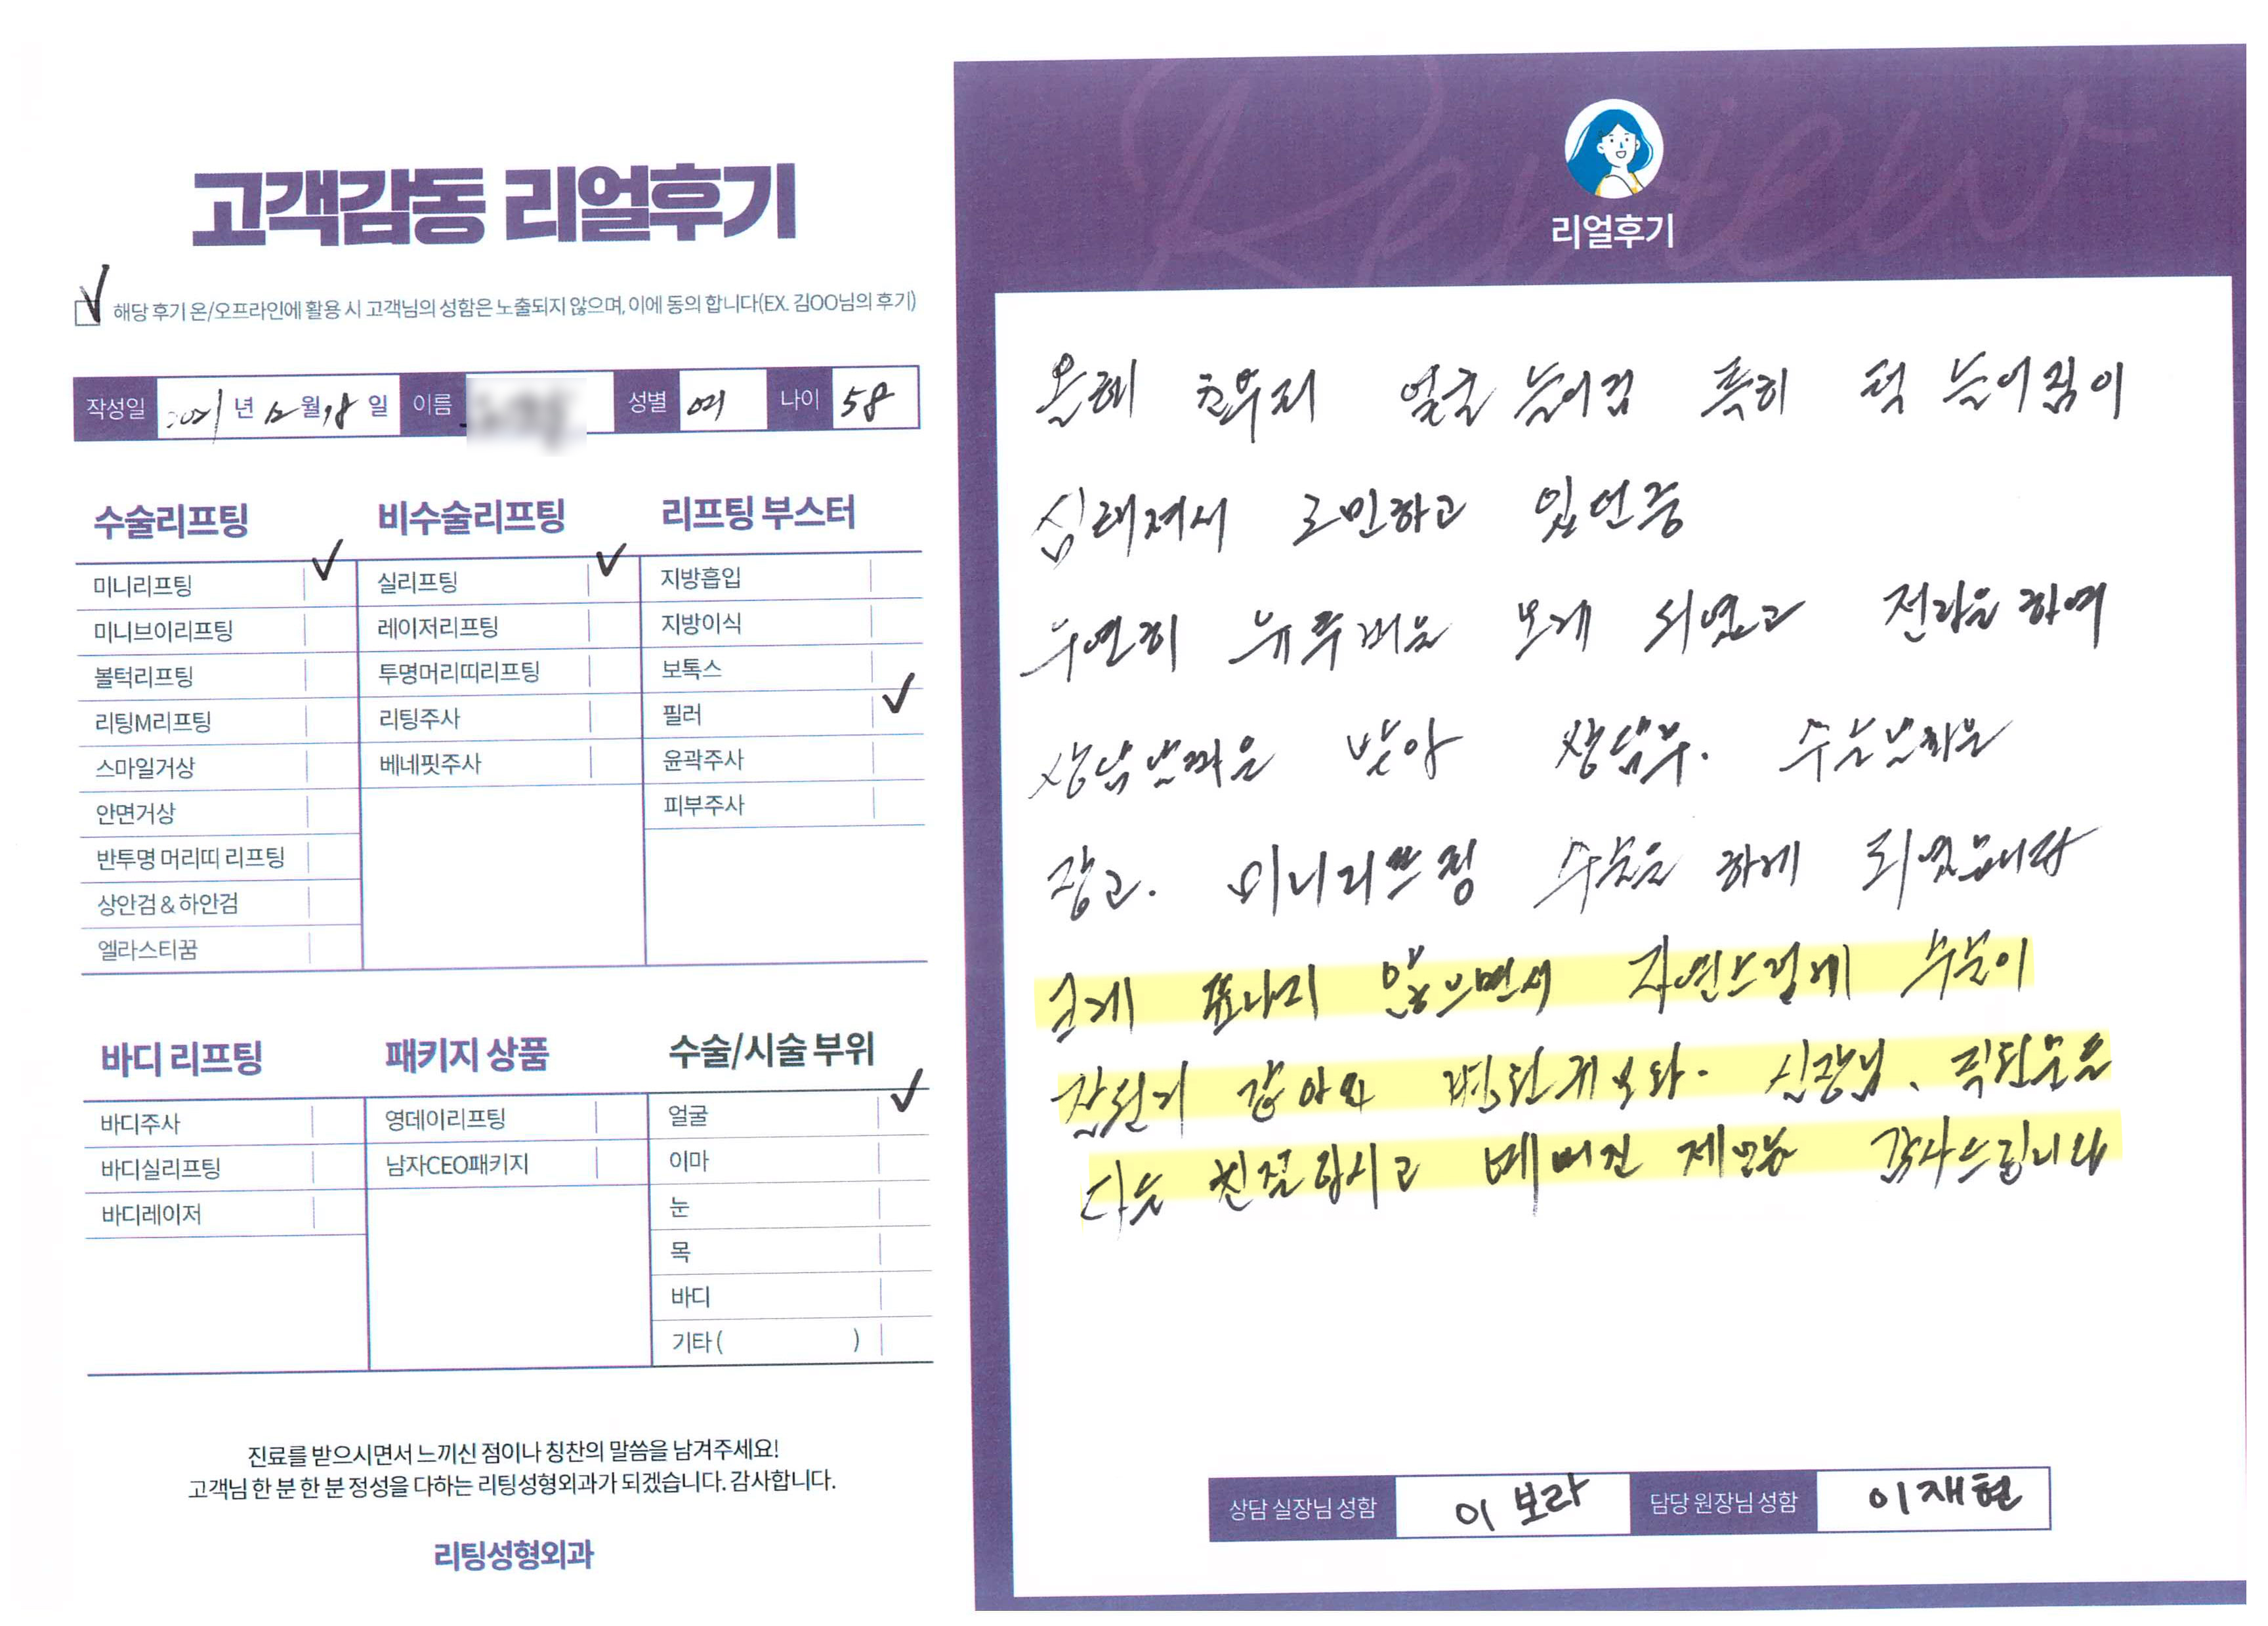 고객감동 리얼후기
해당 후기 온/오프라인에 활용 시 고객님의 성함은 노출되지 않으며, 이에 동의 합니다(EX. 김OO님의 후기)
작성일 2021 년 12 월 18 일 이름 성별 여 나이 58
수술리프팅 비수술리프팅 리프팅 부스터
미니리프팅 실리프팅 지방흡입
미니브이리프팅 레이저리프팅 지방이식
볼턱리프팅 투명머리띠리프팅 보톡스
리팅M리프팅 리팅주사 필러
스마일거상 베네핏주사 윤곽주사
안면거상 피부주사
반투명 머리띠 리프팅
상안검 & 하안검
엘라스티꿈
바디 리프팅 패키지 상품 수술/시술 부위
바디주사 영데이리프팅 얼굴
바디실리프팅 남자CEO패키지 이마
바디레이저 눈
목
바디
기타 ( )
진료를 받으시면서 느끼신 점이나 칭찬의 말씀을 남겨주세요!
고객님 한 분 한 분 정성을 다하는 리팅성형외과가 되겠습니다. 감사합니다.
리팅성형외과
Review
리얼후기
올해 얼굴 늘어짐 특히 턱 늘어짐이
심해져서 고민하고 있던중
우연히 유튜버를 보게 되었고 전화를 하여
상담날짜를 받아 상담후. 수술날짜를
잡고. 미니리프팅 수술을 하게 되었습니다
크게 표나지 않으면서 자연스럽게 수술이
잘된거 같아요 실장님, 직원분들
다들 친절하시고 감사드립니다
상담 실장님 성함 이보라 담당 원장님 성함 이재현